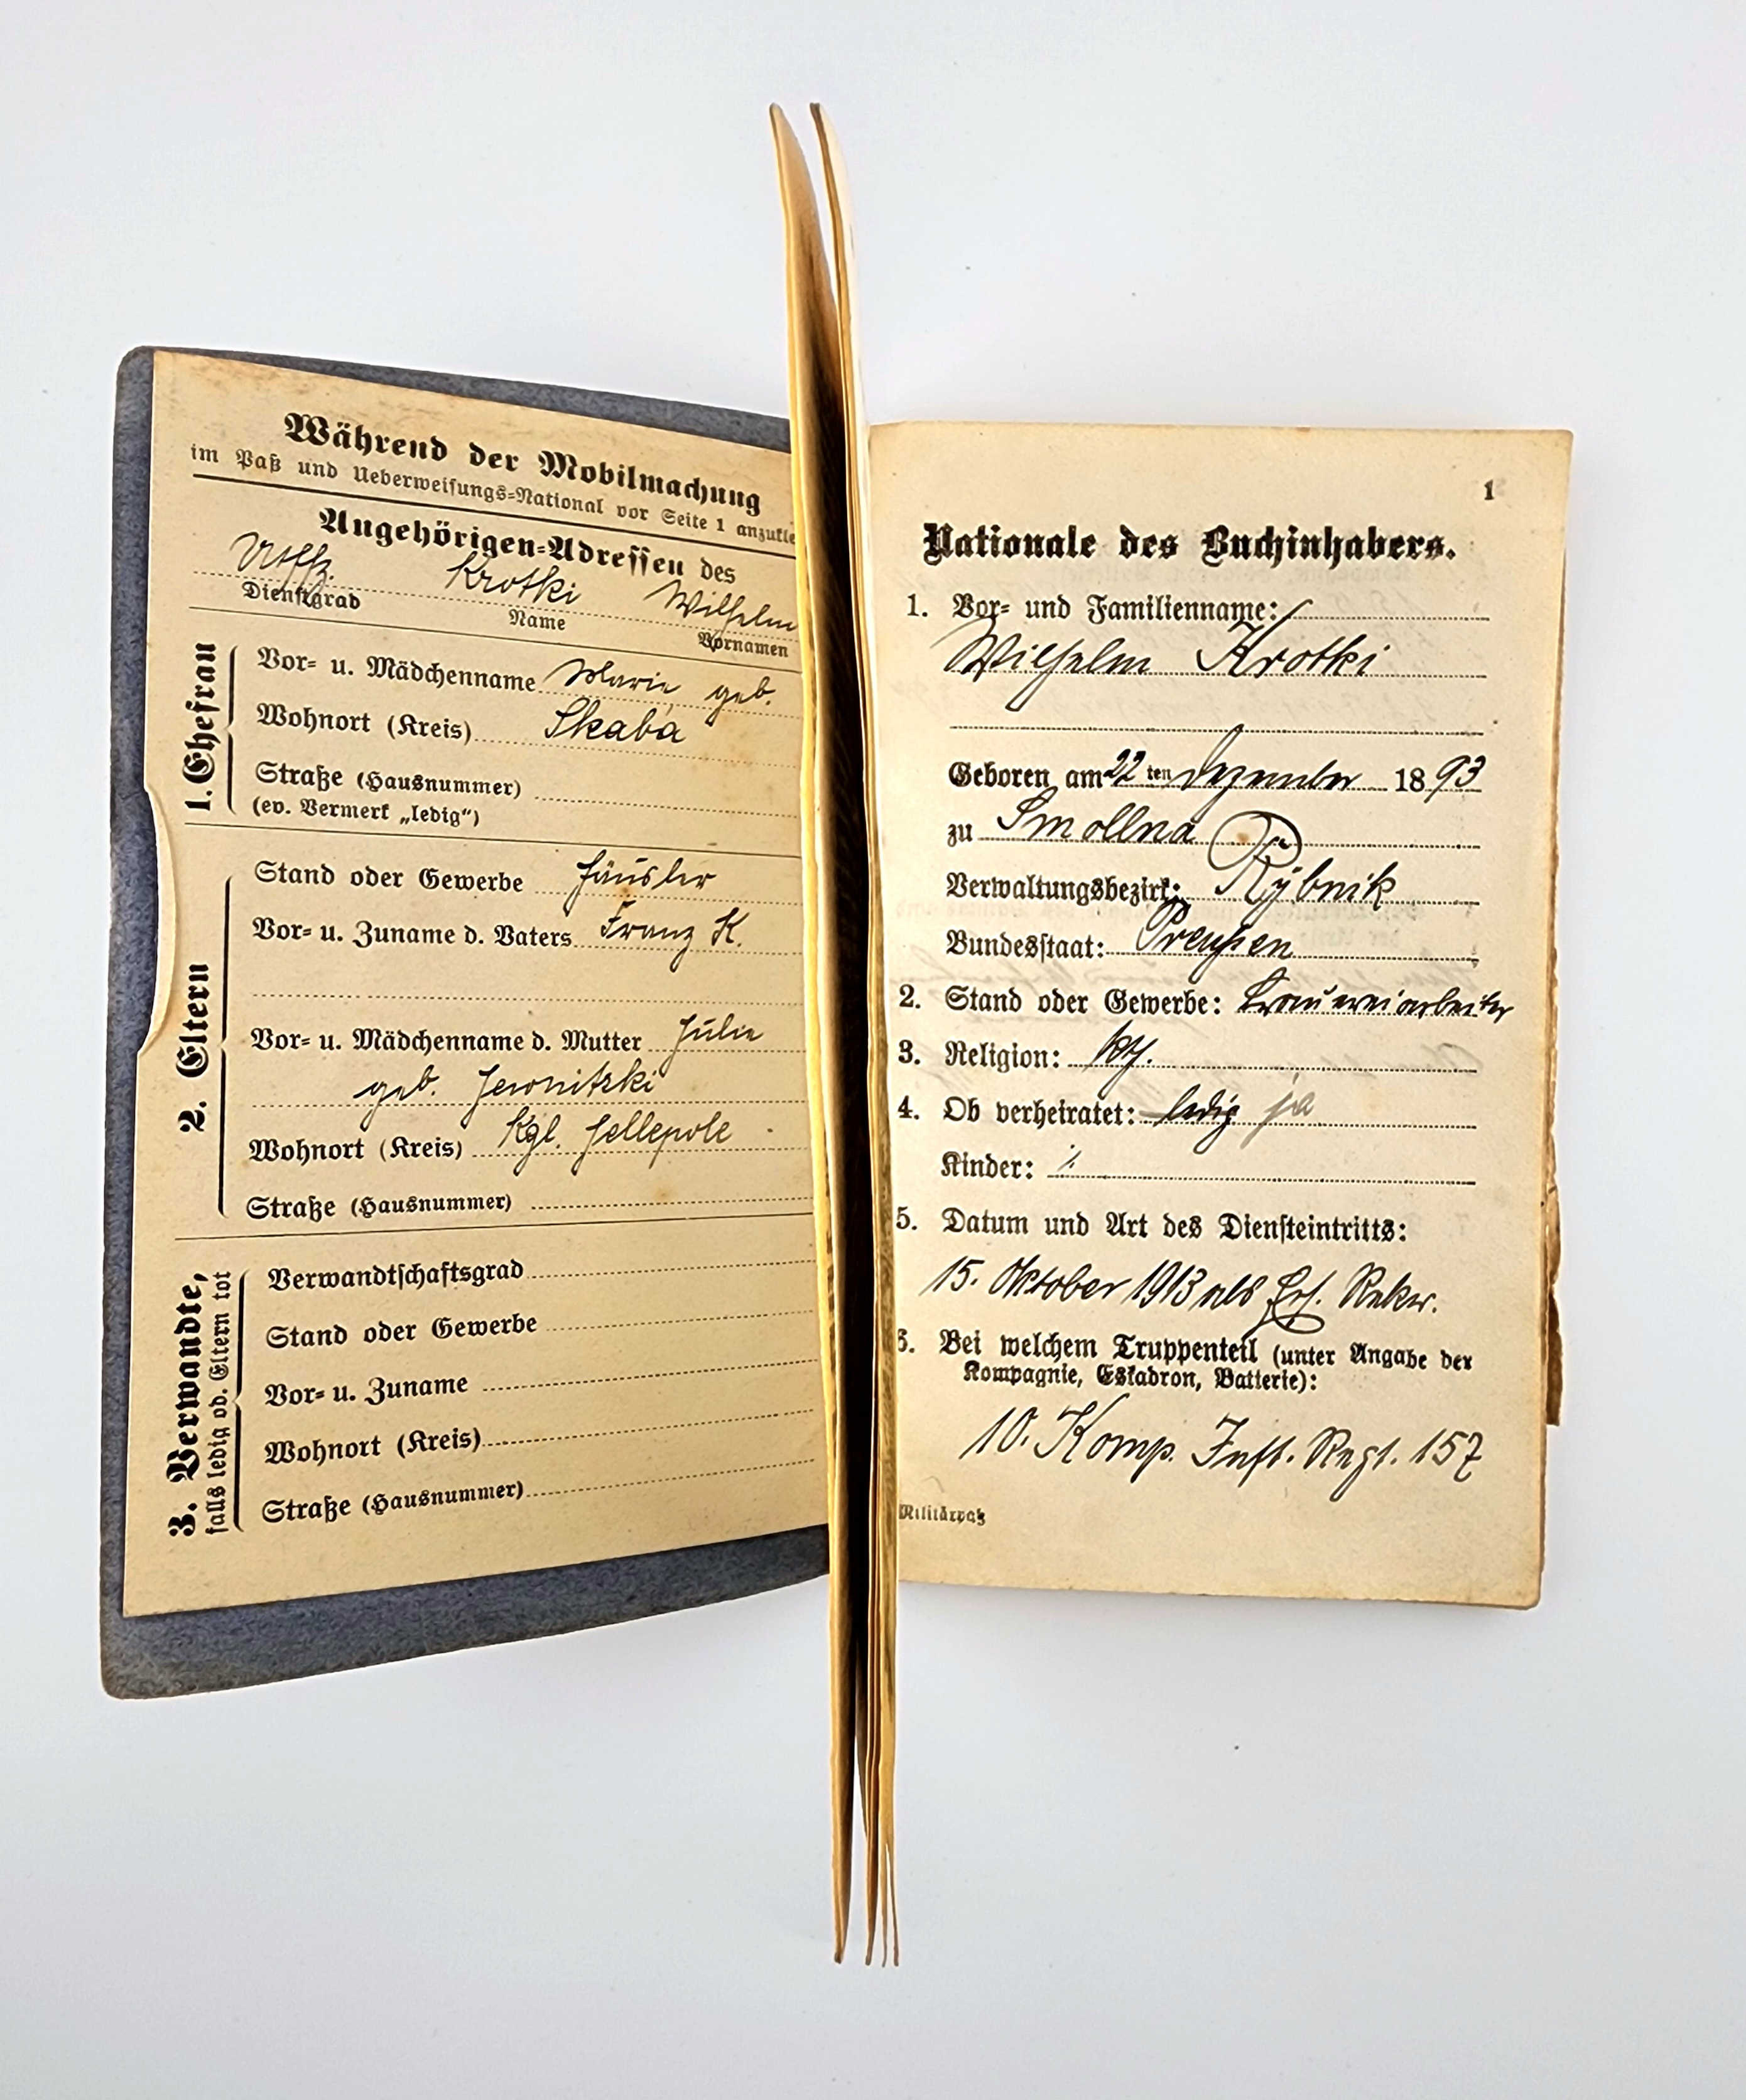 Während der Mobilmachung
im Paß und Ueberweisungs-National vor Seite 1 anzukle
Angehörigen-Adressen des
Utffz. Krotki Wilhelm
Dienstgrad Name Vornamen
1. Ehefrau
Vor- u. Mädchenname Marie geb.
Wohnort (Kreis) Skaba
Straße (Hausnummer)
(ev. Vermerk „ledig“)
2. Eltern
Stand oder Gewerbe Häusler
Vor- u. Zuname d. Vaters Franz K.
Vor- u. Mädchenname d. Mutter Julie
geb.
Wohnort (Kreis) Kgl.
Straße (Hausnummer)
3. Verwandte,
falls ledig od. Eltern tot
Verwandtschaftsgrad
Stand oder Gewerbe
Vor- u. Zuname
Wohnort (Kreis)
Straße (Hausnummer)
1
Nationale des Buchinhabers.
1. Vor- und Familienname:
Wilhelm Krotki
Geboren am 22 ten Dezember 1893
zu Smollna
Verwaltungsbezirk: Rybnik
Bundesstaat: Preußen
2. Stand oder Gewerbe: Brauereiarbeiter
3. Religion: kth.
4. Ob verheiratet: ledig ja
Kinder: ·/.
5. Datum und Art des Diensteintritts:
15. Oktober 1913 als Ers. Rekr.
6. Bei welchem Truppenteil (unter Angabe der
Kompagnie, Eskadron, Batterie):
10. Komp. Inft. Regt. 157
Militärpaß